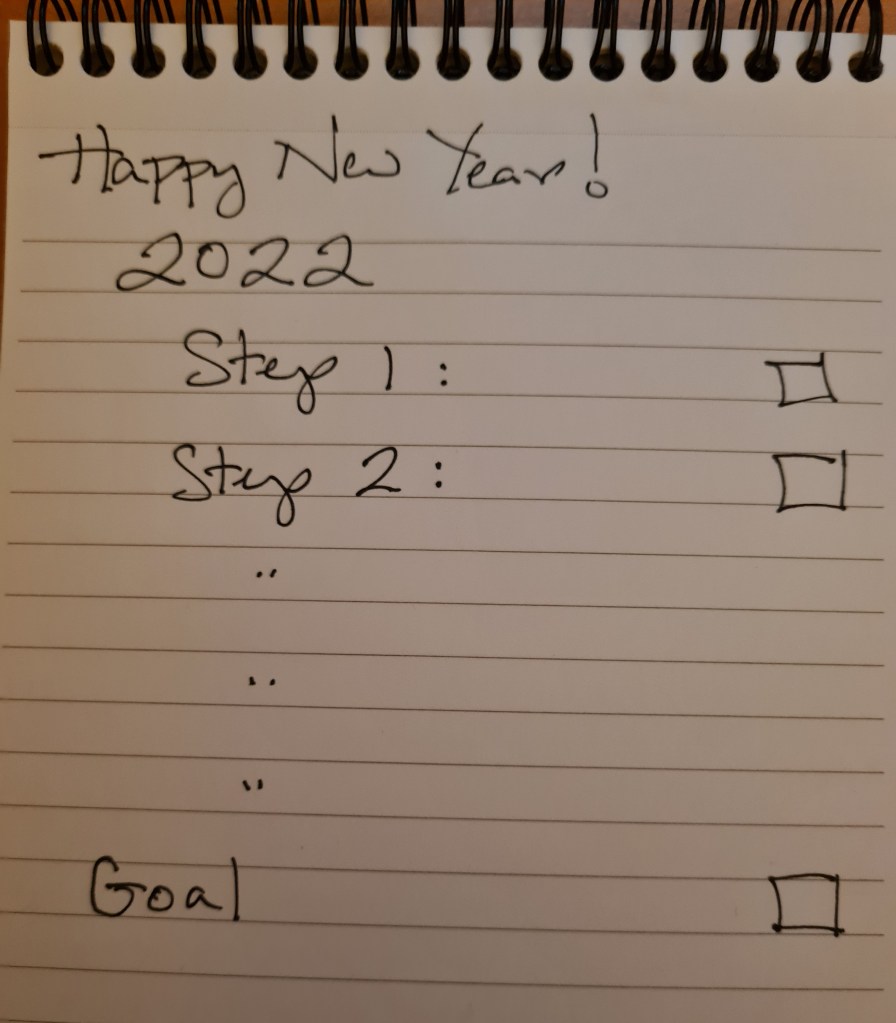 Happy New Year!
2022
Step 1:
Step 2:
"
"
"
Goal